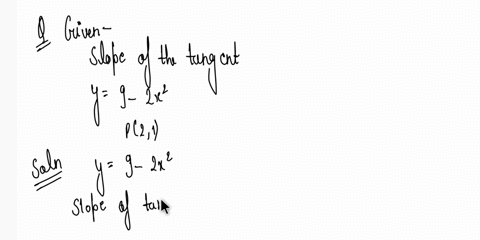 Q Given-
Slope of the tangent
y = 9 - 2x²
P(2,1)
Soln y = 9 - 2x²
Slope of tan